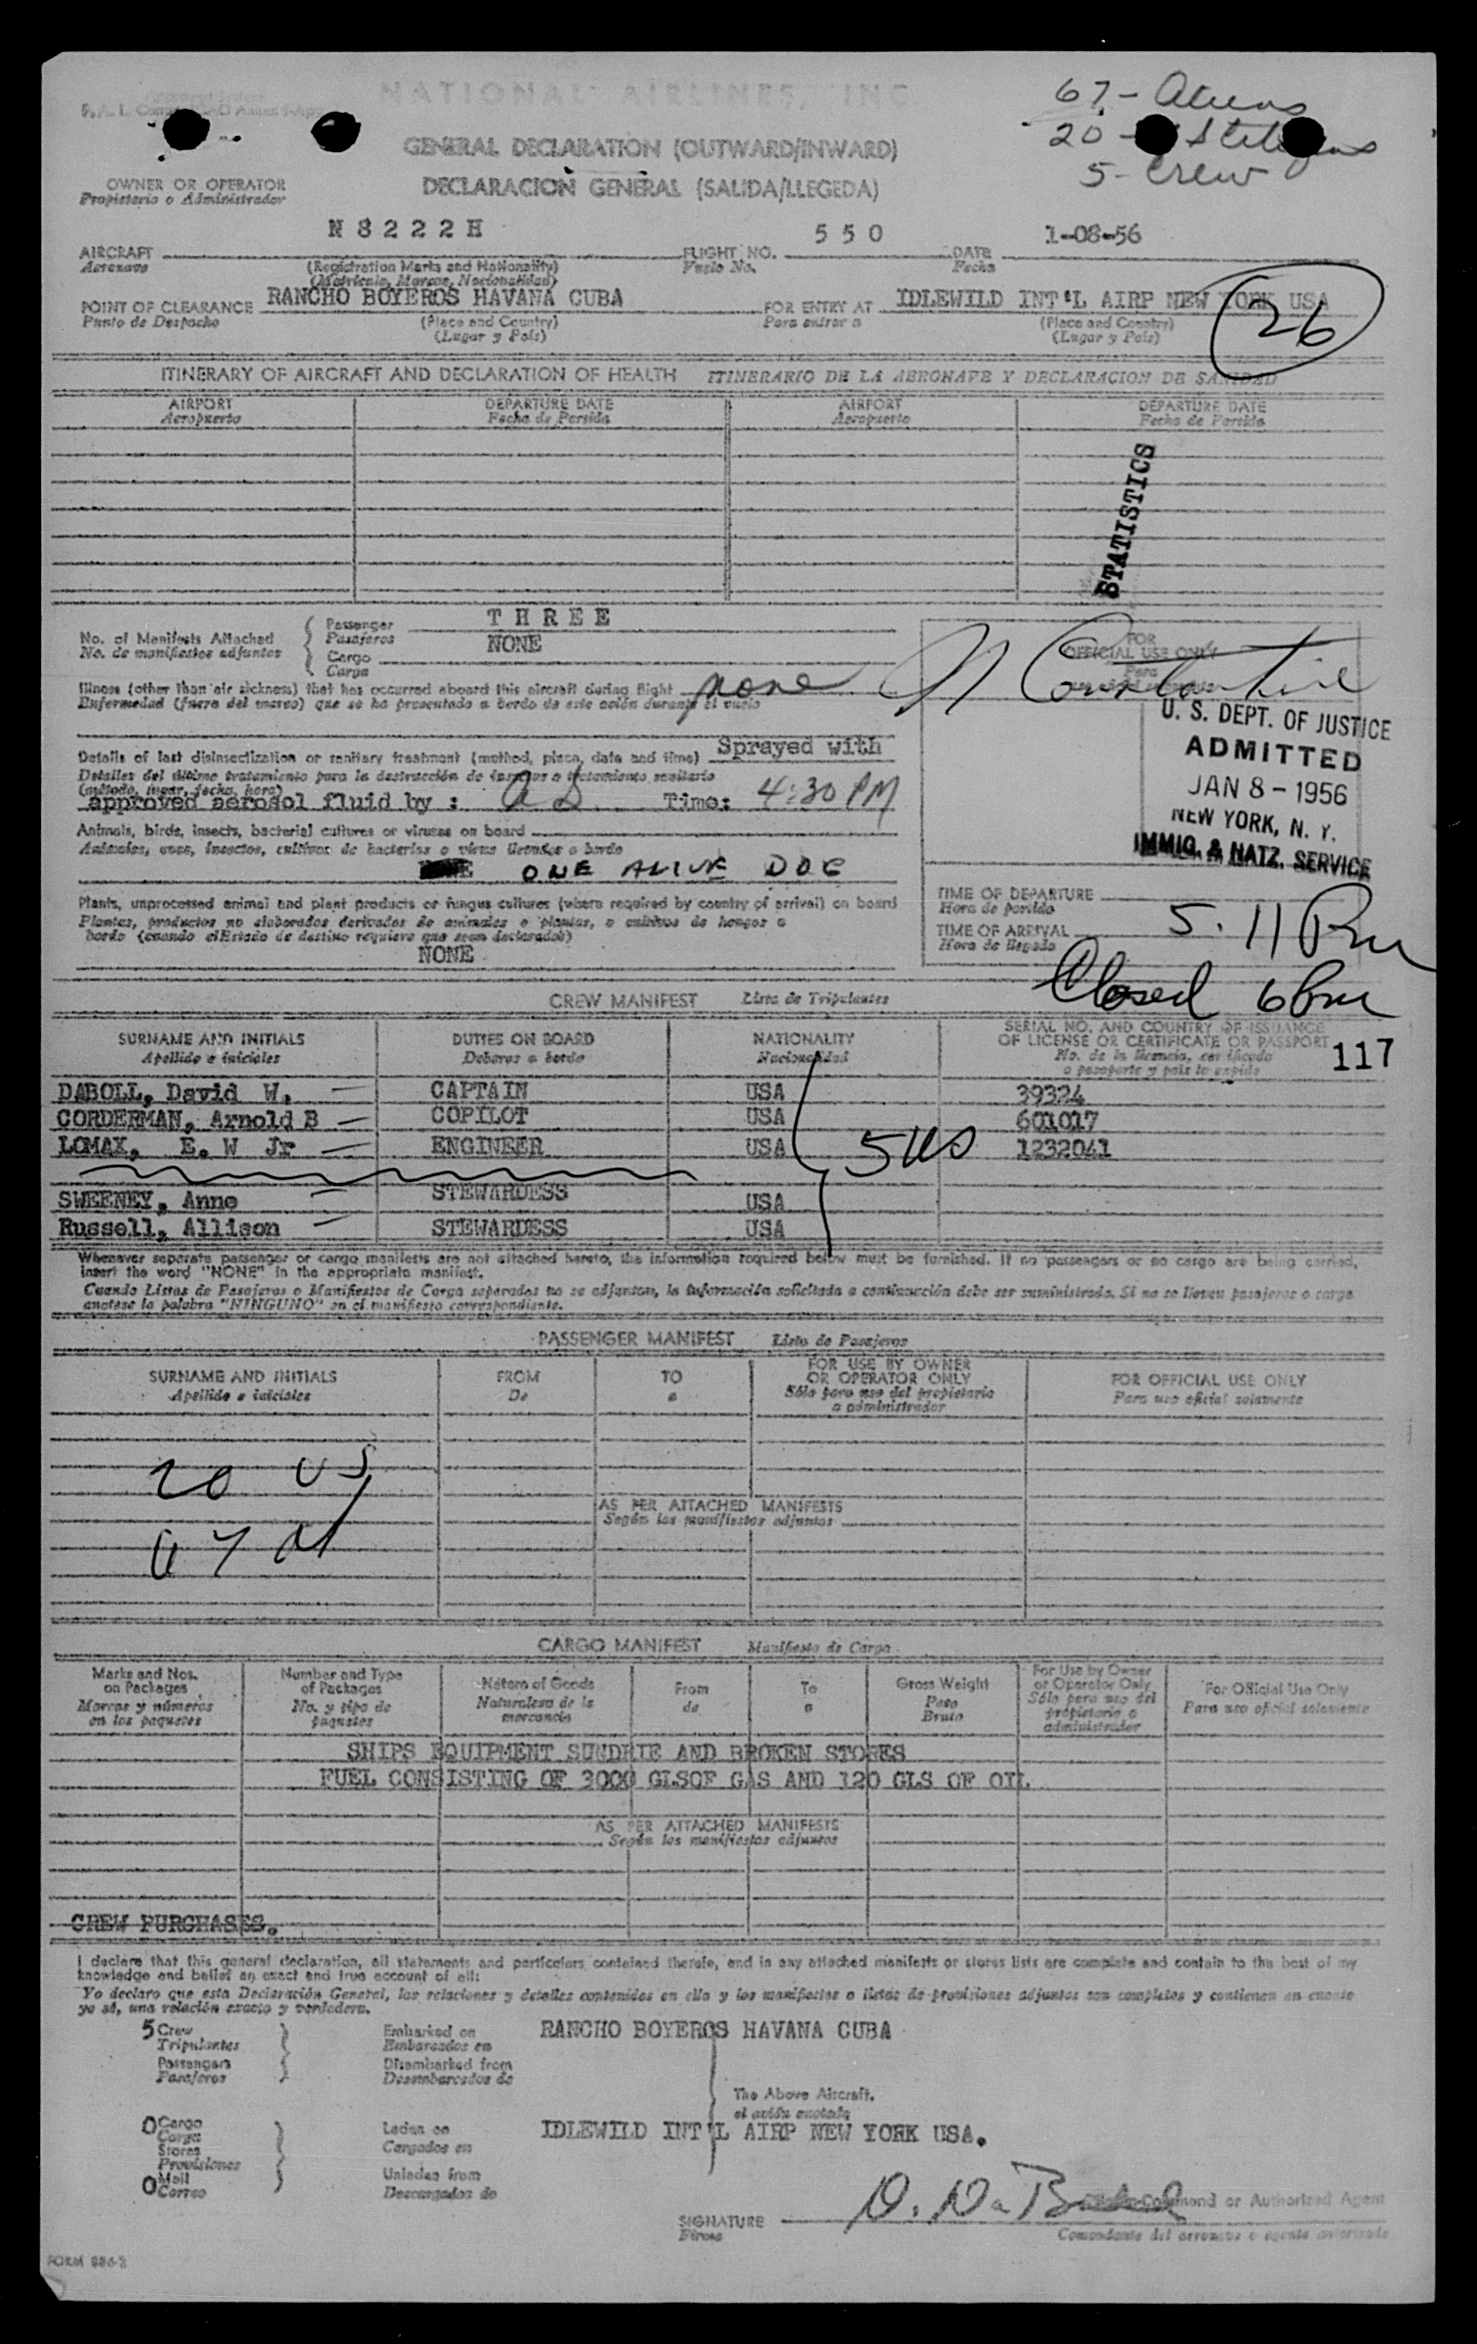 NATIONAL AIRLINES, INC
67 - Aliens
20 - Citizens
5 - Crew
GENERAL DECLARATION (OUTWARD/INWARD)
DECLARACION GENERAL (SALIDA/LLEGEDA)
OWNER OR OPERATOR
Propietario o Administrador
N8222H
550
1-08-56
AIRCRAFT
Aeronave
(Registration Marks and Nationality)
(Matricula, Marcas, Nacionalidad)
FLIGHT NO.
Vuelo No.
DATE
Fecha
POINT OF CLEARANCE RANCHO BOYEROS HAVANA CUBA FOR ENTRY AT IDLEWILD INT'L AIRP NEW YORK USA
Punto de Despacho (Place and Country) Para entrar a (Place and Country)
(Lugar y Pais) (Lugar y Pais)
26
ITINERARY OF AIRCRAFT AND DECLARATION OF HEALTH ITINERARIO DE LA AERONAVE Y DECLARACION DE SANIDAD
AIRPORT DEPARTURE DATE AIRPORT DEPARTURE DATE
Aeropuerto Fecha de Partida Aeropuerto Fecha de Partida
STATISTICS
No. of Manifests Attached
No. de manifiestos adjuntos
Passenger THREE
Pasajeros
Cargo NONE
Carga
FOR
OFFICIAL USE ONLY
Para
N Constantine
Illness (other than air sickness) that has occurred aboard this aircraft during flight none
Enfermedad (fuera del mareo) que se ha presentado a bordo de este avión durante el vuelo
U. S. DEPT. OF JUSTICE
ADMITTED
JAN 8 - 1956
NEW YORK, N. Y.
IMMIG. & NATZ. SERVICE
Details of last disinsectization or sanitary treatment (method, place, date and time) Sprayed with
Detalles del último tratamiento para la destrucción de insectos o tratamiento sanitario
(método, lugar, fecha, hora)
approved aerosol fluid by : Time: 4:30 PM
Animals, birds, insects, bacterial cultures or viruses on board
Animales, aves, insectos, cultivos de bacterias o virus llevados a bordo
ONE ALIVE DOG
Plants, unprocessed animal and plant products or fungus cultures (where required by country of arrival) on board
Plantas, productos no elaborados derivados de animales o plantas, o cultivos de hongos a
bordo (cuando el Estado de destino requiere que sean declarados)
NONE
TIME OF DEPARTURE
Hora de partida
TIME OF ARRIVAL 5:11 Pm
Hora de llegada
Closed 6 Pm
CREW MANIFEST Lista de Tripulantes
SURNAME AND INITIALS DUTIES ON BOARD NATIONALITY SERIAL NO. AND COUNTRY OF ISSUANCE
OF LICENSE OR CERTIFICATE OR PASSPORT
Apellido e iniciales Deberes a bordo Nacionalidad No. de la licencia, certificado
o pasaporte y pais lo expide
117
DABOLL, David W. CAPTAIN USA 39324
CORDERMAN, Arnold B COPILOT USA 601017
LOMAX, E. W Jr ENGINEER USA 1232041
5 US
SWEENEY, Anne STEWARDESS USA
Russell, Allison STEWARDESS USA
Whenever separate passenger or cargo manifests are not attached hereto, the information required below must be furnished. If no passengers or no cargo are being carried,
insert the word "NONE" in the appropriate manifest.
Cuando Listas de Pasajeros o Manifiestos de Carga separados no se adjuntan, la información solicitada a continuación debe ser suministrada. Si no se llevan pasajeros o carga
anotese la palabra "NINGUNO" en el manifiesto correspondiente.
PASSENGER MANIFEST Lista de Pasajeros
SURNAME AND INITIALS FROM TO FOR USE BY OWNER
OR OPERATOR ONLY FOR OFFICIAL USE ONLY
Apellido e iniciales De a Sólo para uso del propietario
o administrador Para uso oficial solamente
20 US
67 A
AS PER ATTACHED MANIFESTS
Según los manifiestos adjuntos
CARGO MANIFEST Manifiesto de Carga
Marks and Nos.
on Packages
Marcas y números
en los paquetes
Number and Type
of Packages
No. y tipo de
paquetes
Nature of Goods
Naturaleza de la
mercancia
From
de
To
a
Gross Weight
Peso
Bruto
For Use by Owner
or Operator Only
Sólo para uso del
propietario o
administrador
For Official Use Only
Para uso oficial solamente
SHIPS EQUIPMENT SUNDRIE AND BROKEN STORES
FUEL CONSISTING OF 3000 GLSOF GAS AND 120 GLS OF OIL
AS PER ATTACHED MANIFESTS
Según los manifiestos adjuntos
CREW PURCHASES.
I declare that this general declaration, all statements and particulars contained therein, and in any attached manifests or stores lists are complete and contain to the best of my
knowledge and belief an exact and true account of all:
Yo declaro que esta Declaración General, las relaciones y detalles contenidos en ella y los manifiestos o listas de provisiones adjuntos son completos y contienen en cuanto
yo sé, una relación exacta y verdadera.
5 Crew Embarked on RANCHO BOYEROS HAVANA CUBA
Tripulantes Embarcados en
Passengers Disembarked from
Pasajeros Desembarcados de
The Above Aircraft.
el avión anotado
0 Cargo Laden on IDLEWILD INT'L AIRP NEW YORK USA.
Carga Cargados en
Stores
Provisiones Unladen from
0 Mail Descargados de
Correo
SIGNATURE D. Daboll
Firma
Command or Authorized Agent
Comandante del aeronave o agente autorizado
FORM 886-2